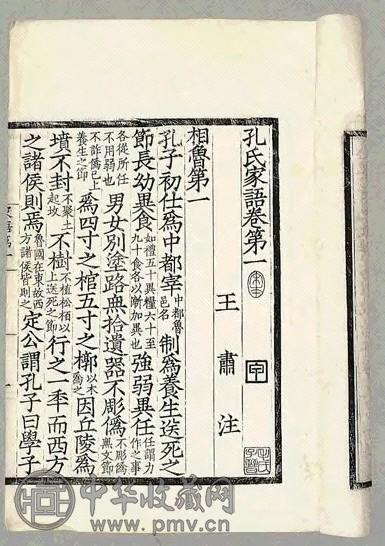 孔氏家語卷第一
王肅注
相魯第一
孔子初仕爲中都宰中都魯邑名制爲養生送死之
節長幼異食如禮五十異糧六十至九十食各以漸加異也強弱異任任謂力作之事
各從所任不用弱也男女別塗路無拾遺器不彫僞不彫僞無文飾
不詐僞已上養生之節爲四寸之棺五寸之槨以木爲之因丘陵爲
墳不封不聚土起坟不樹不植松柏以上送死之節行之一年而西方
之諸侯則焉魯國在東故西方諸侯皆則之定公謂孔子曰學子
中华收藏网
www.pmv.cn